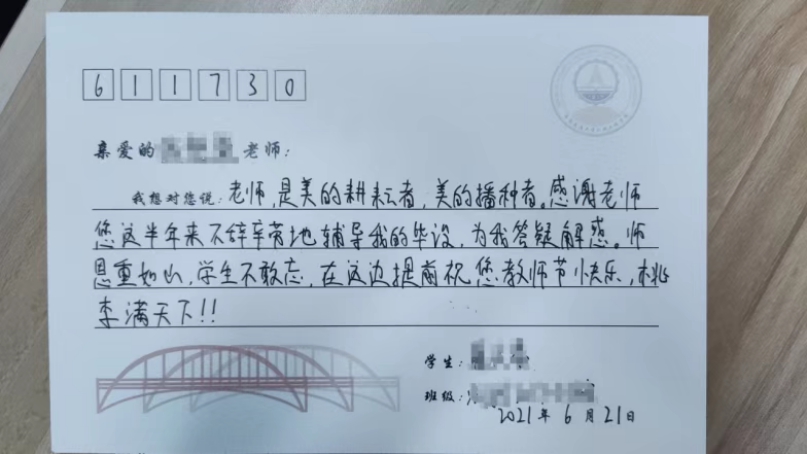 611730
亲爱的 老师：
我想对您说：老师,是美的耕耘者,美的播种者。感谢老师
您这半年来不辞辛劳地辅导我的毕设,为我答疑解惑。师
恩重如山,学生不敢忘,在这边提前祝您教师节快乐,桃
李满天下!!
学生：
班级：
2021年6月21日